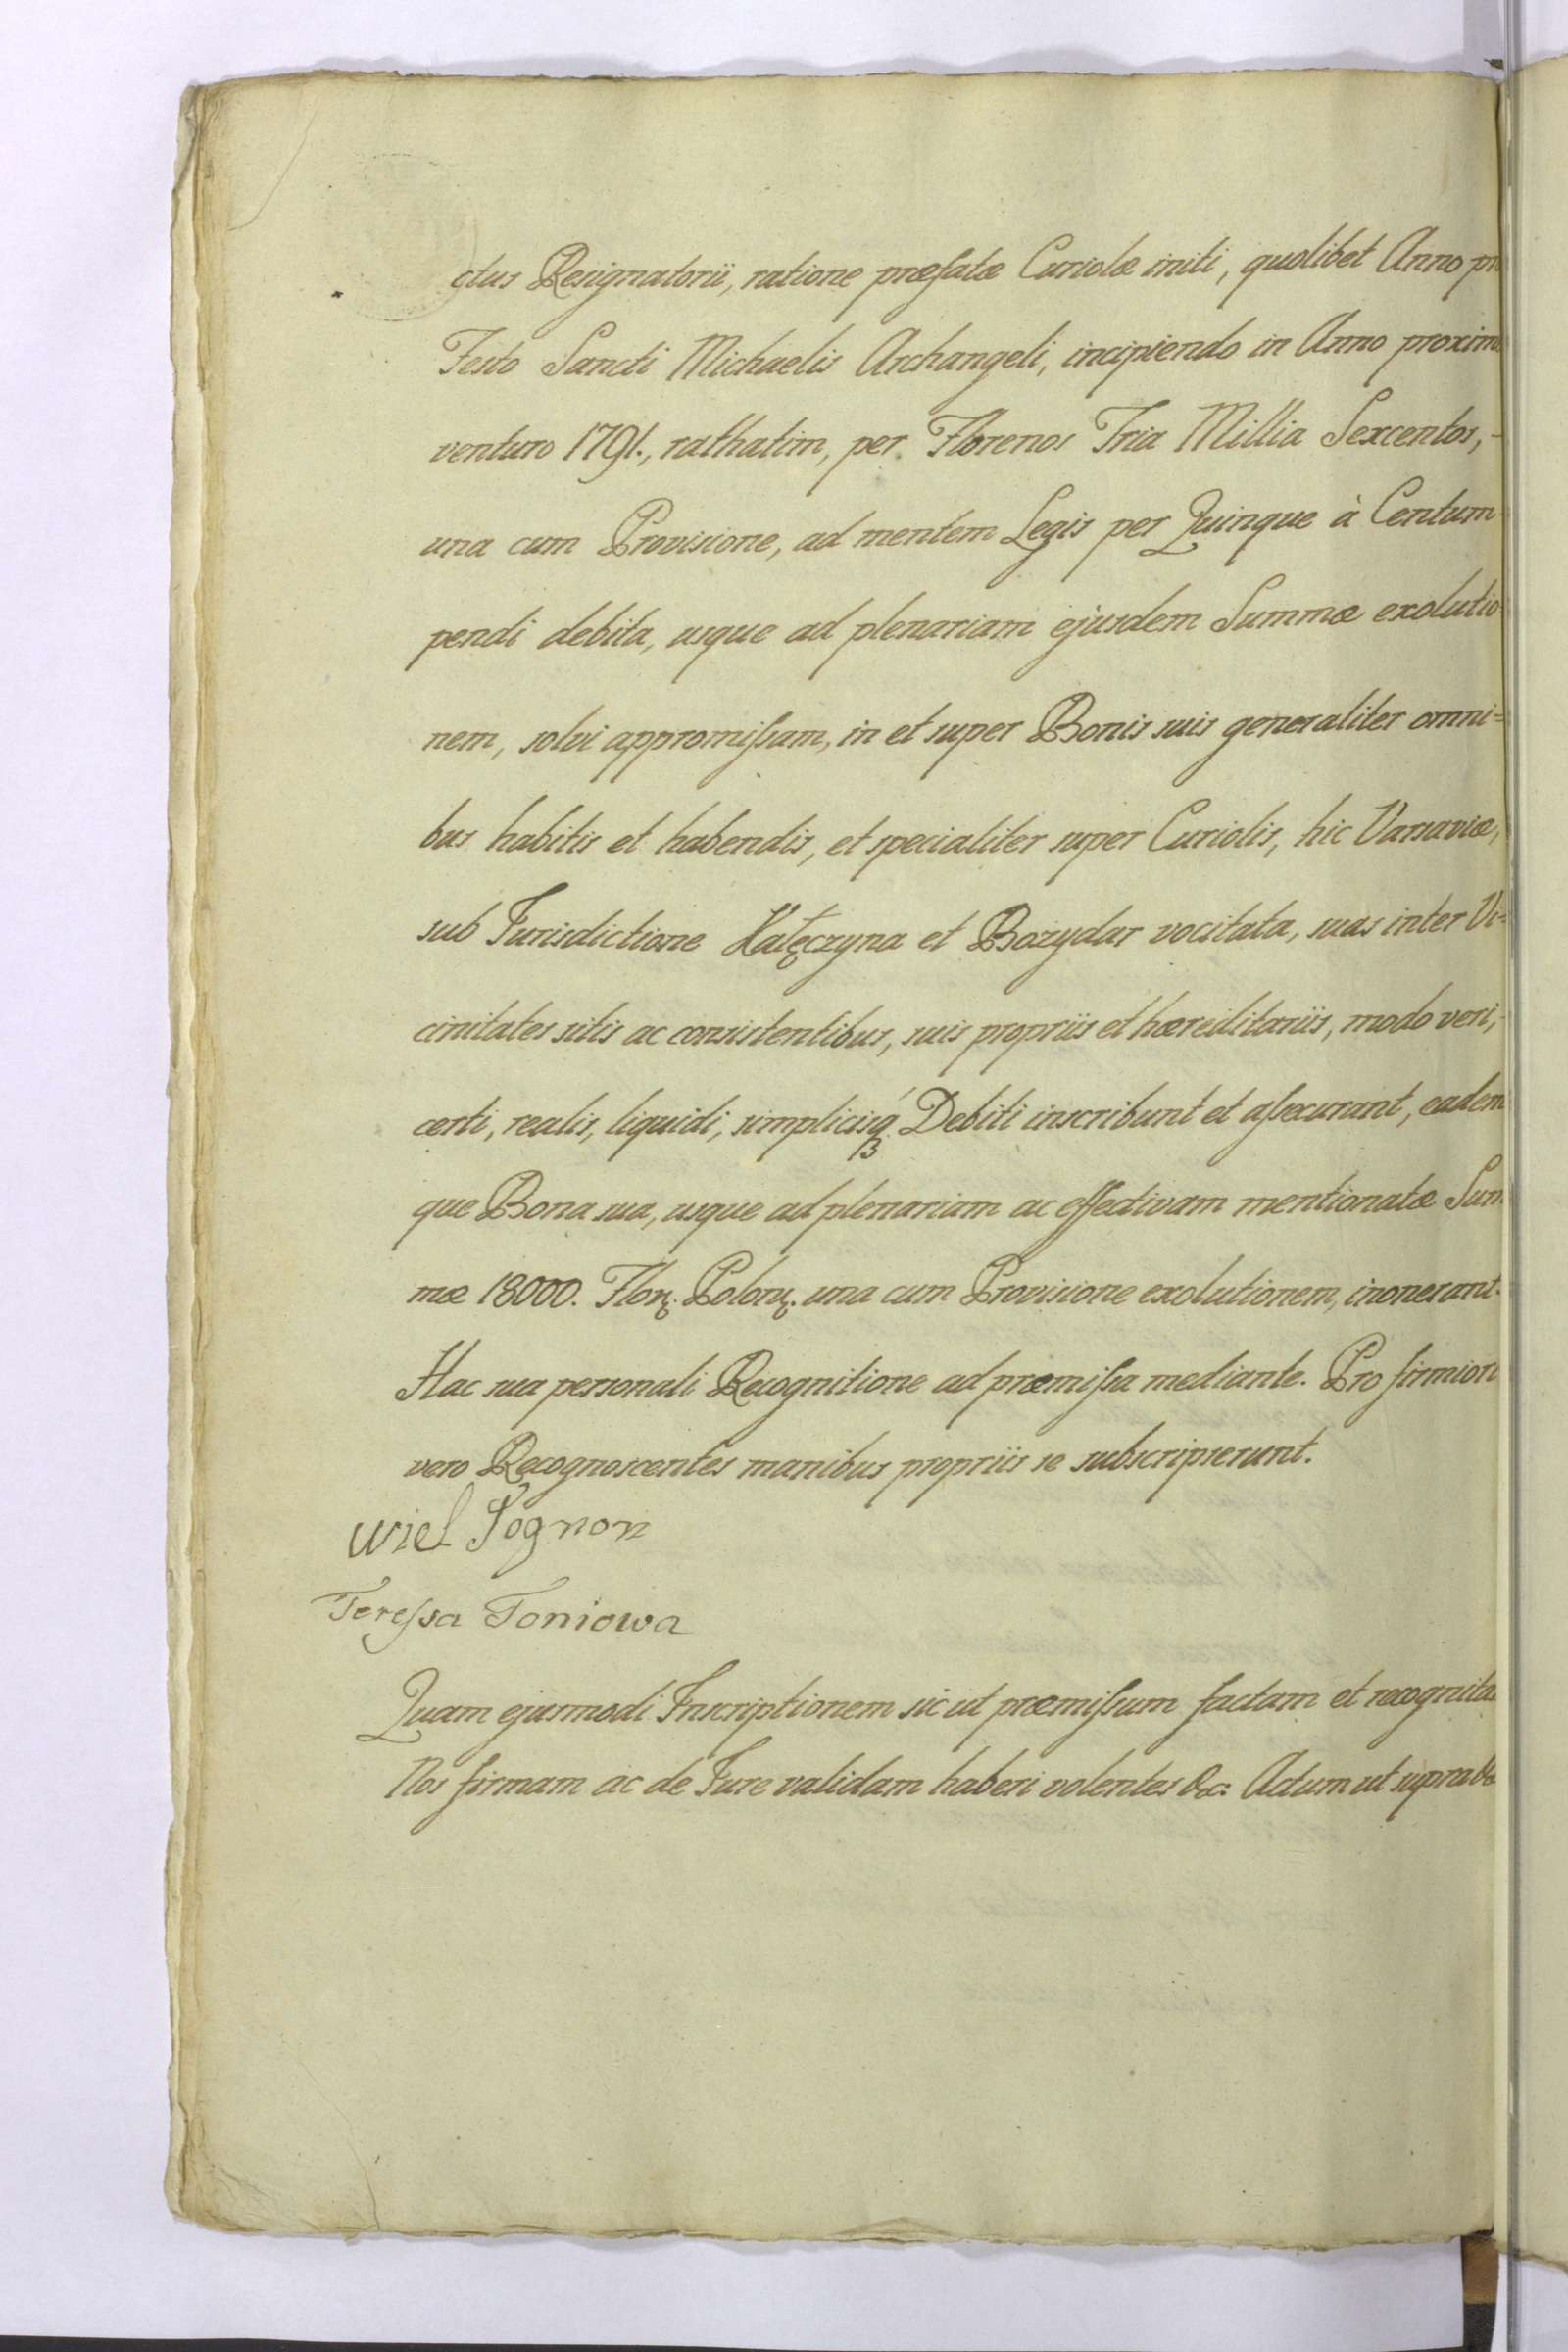 ctus Resignatorii, ratione præfatæ Curiolæ initi, quolibet Anno pro
Festo Sancti Michaelis Archangeli, incipiendo in Anno proxime
venturo 1791., rathatim, per Florenos Tria Millia Sexcentos,-
una cum Provisione, ad mentem Legis per Quinque à Centum
pendi debita, usque ad plenariam ejusdem Summæ exolutio
nem, solvi appromiſsam, in et super Bonis suis generaliter omni=
bus habitis et habendis, et specialiter super Curiolis, hic Varsaviæ,
sub Jurisdictione Kałęczyna et Bozydar vocitata, suas inter Vi=
cinitates sitis ac consistentibus, suis propriis et hæreditariis, modo veri,-
certi, realis, liquidi, simplicisq́ꝫ Debiti inscribunt et aſsecurant, eadem
que Bona sua, usque ad plenariam ac effectivam mentionatæ Sum
mæ 18000. Florę. Polorę. una cum Provisione exolutionem, inonerant.
Hac sua personali Recognitione ad præmiſsa mediante. Pro firmiori
vero Recognoscentes manibus propriis se subscripserunt.
wiel Tognon
Tereſsa Toniowa
Quam ejusmodi Inscriptionem sic ut præmiſsum factam et recognita
Nos firmam ac de Jure validam haberi volentes &c: Actum ut supra &c